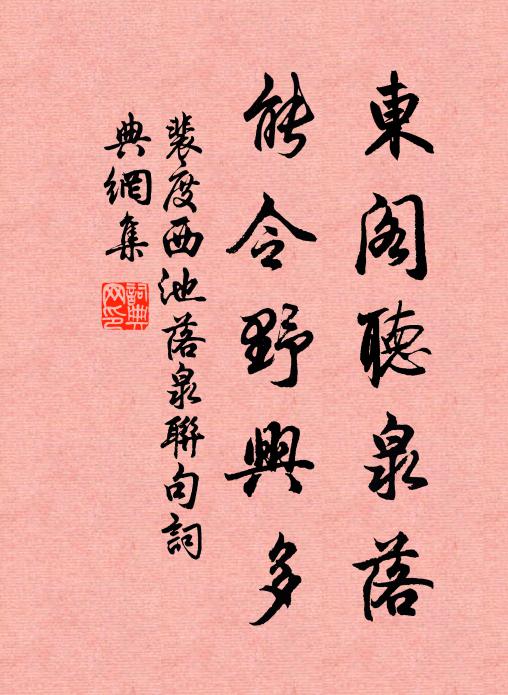 東閣聽泉落
能令野興多
裴度西池落泉聯句詞
典網集
詞典
网印